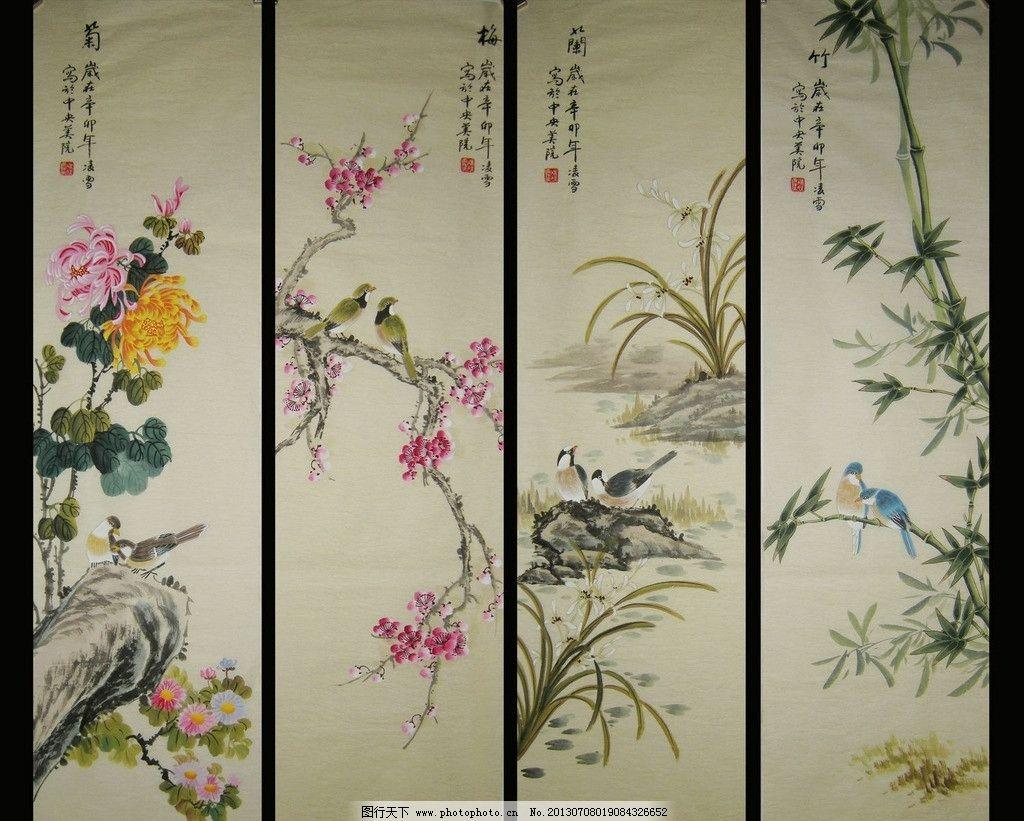 菊
歲在辛卯年凌雪
寫於中央美院
梅
歲在辛卯年凌雪
寫於中央美院
蘭
歲在辛卯年凌雪
寫於中央美院
竹
歲在辛卯年凌雪
寫於中央美院
图行天下 www.photophoto.cn No.20130708019084326652